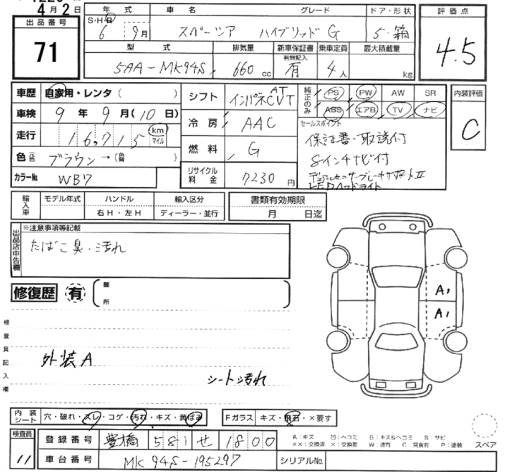 4月2日
出品番号
71
年式 車名 グレード ドア・形状
S・H・R 6年 9月 スペーシア ハイブリッド G 5・箱
型式 排気量 新車保証書 有無記入 乗車定員 最大積載量
5AA-MK94S 660cc 有 4人 kg
評価点
4.5
車歴 自家用・レンタ( )
車検 9年 9月(10日)
走行 16715 km マイル
色 ブラウン→( )
カラーNo. WB7
シフト インパネAT CVT
冷房 AAC
燃料 G
リサイクル料金 7230円
純正のみ PS PW AW SR
ABS エアB TV ナビ
セールスポイント
保証書・取説付
8インチナビ付
デュアルセンサーブレーキサポートII
LEDヘッドライト
内装評価
C
輸入車 モデル年式 ハンドル 輸入区分
年 右H・左H ディーラー・並行
書類有効期限
月 日迄
出品店申告欄
※注意事項等記載
たばこ臭・汚れ
修復歴 有 箇所
検査員記入欄
外装A
シート汚れ
A1
A1
内装シート 穴・破れ・スレ・コゲ・汚れ・キズ・黄ばみ
Fガラス キズ・飛石・×要す
検査員
11
登録番号 豊橋 581 せ 1800
車台番号 MK94S-195297
シリアルNo.
スペア